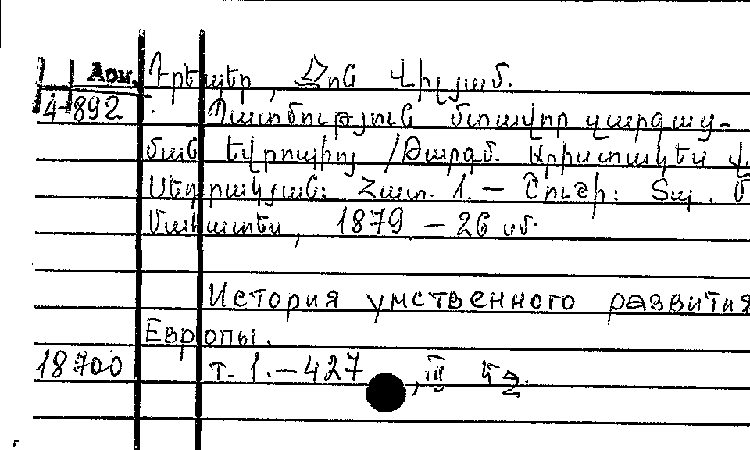 Арм. Դրեպեր, Ջոն Վիլյամ.
4-892 Պատմություն մտավոր զարգաց-
ման Եվրոպիո /Թարգմ. Արիստակես վ.
Սեդրակյան: Հատ. 1. — Շուշի: Տպ. Մ
Մահատես, 1879 — 26 սմ.
История умственного развития
Европы.
18700 т. 1. — 427 , III էջ.